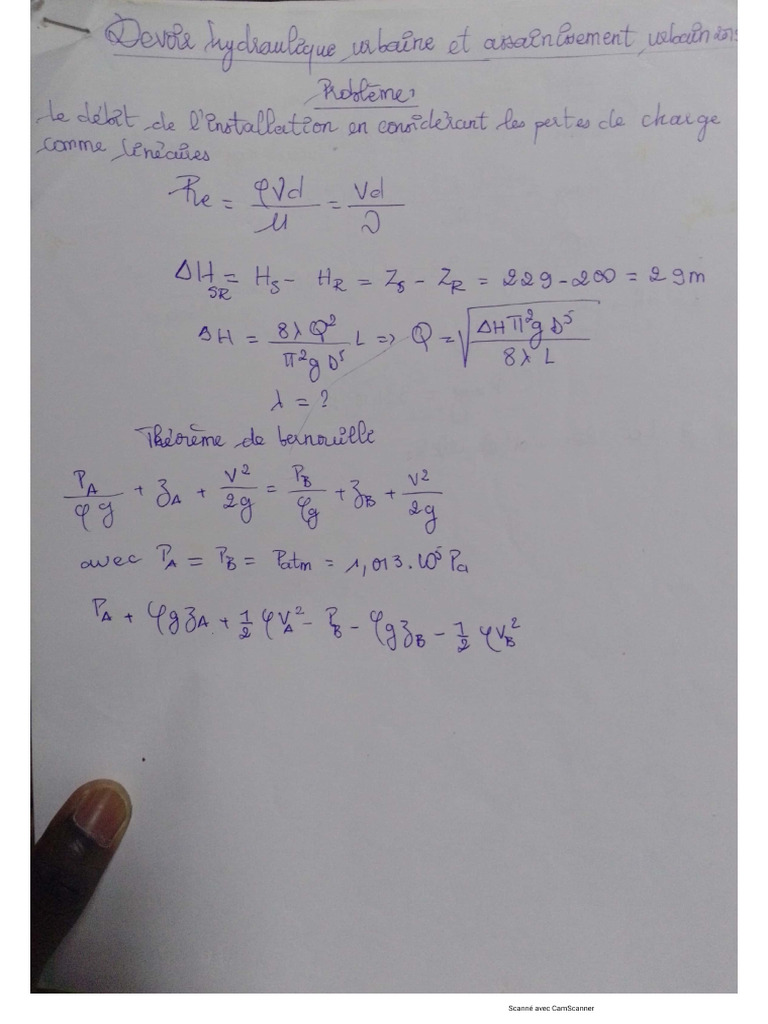 Devoir hydraulique urbaine et assainissement urbain 201
Problème:
Le débit de l'installation en considérant les pertes de charge
comme linéaires
Re = ρVd/μ = Vd/ν
ΔH_SR = H_S - H_R = Z_S - Z_R = 229-200 = 29m
ΔH = 8λQ²/π²gD⁵ L => Q = √(ΔHπ²gD⁵/8λL)
λ = ?
Théorème de bernouille
P_A/ρg + z_A + V²/2g = P_B/ρg + z_B + V²/2g
avec P_A = P_B = Patm = 1,013.10⁵ Pa
P_A + ρgz_A + 1/2 ρV_A² - P_B - ρgz_B - 1/2 ρV_B²
Scanné avec CamScanner